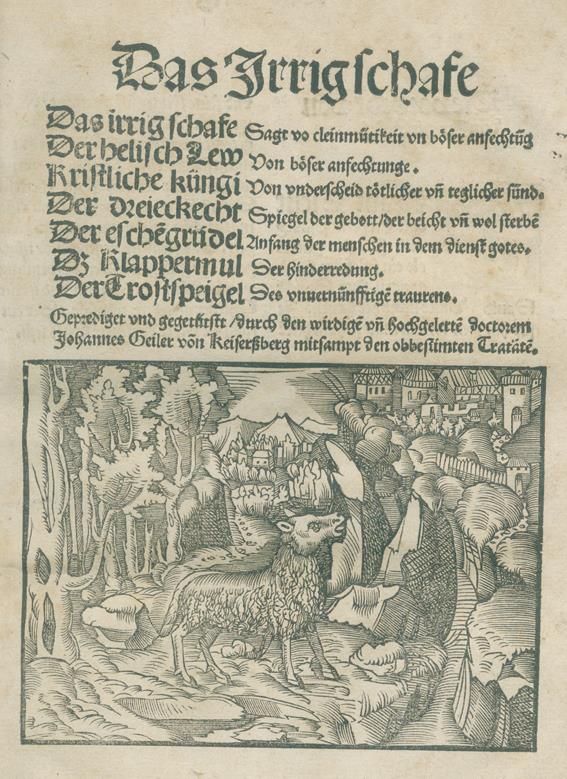 Das Irrig schafe
Das irrig schafe Sagt vō cleinmütikeit vn böser anfechtūg
Der helisch Lew Von böser anfechtunge.
Kristliche küngi Von vnderscheid tötlicher vn̄ teglicher sünd.
Der dreieckecht Spiegel der gebott/der beicht vn̄ wol sterbē
Der eschēgrüdel Anfang der menschen in dem dienst gotes.
Dz Klappermul Der hinderredung.
Der Trostspeigel Des vnuernünfftigē traurens.
Geprediget vnd gegetütstt/durch den wirdigē vn̄ hochgelertē doctorem
Johannes Geiler vōn Keiserßberg mitsampt den obbestimten Tratatē.